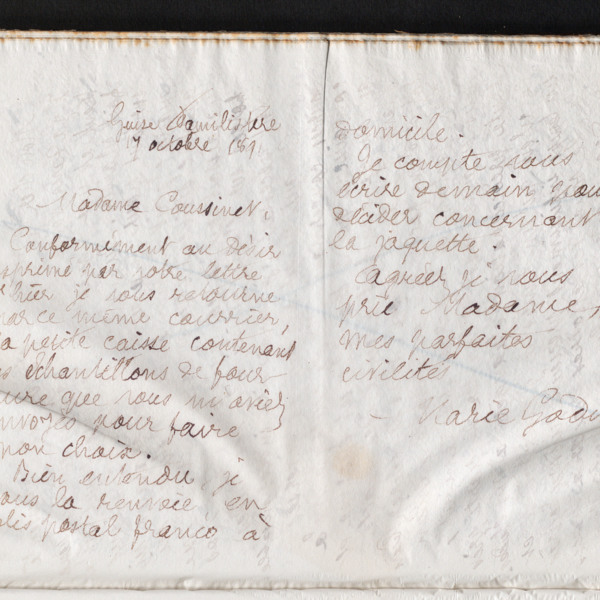 Guise Familistère
7 octobre 189
Madame Cousinet,
Conformément au désir
exprimé par votre lettre
d'hier je vous retourne
par ce même courrier,
la petite caisse contenant
les échantillons de four-
rure que vous m'aviez
envoyés pour faire
mon choix.
Bien entendu je
vous la renvoie en
colis postal franco à
domicile.
Je compte vous
écrire demain pour
décider concernant
la jaquette.
Agréez je vous
prie Madame,
mes parfaites
civilités
Marie Godi